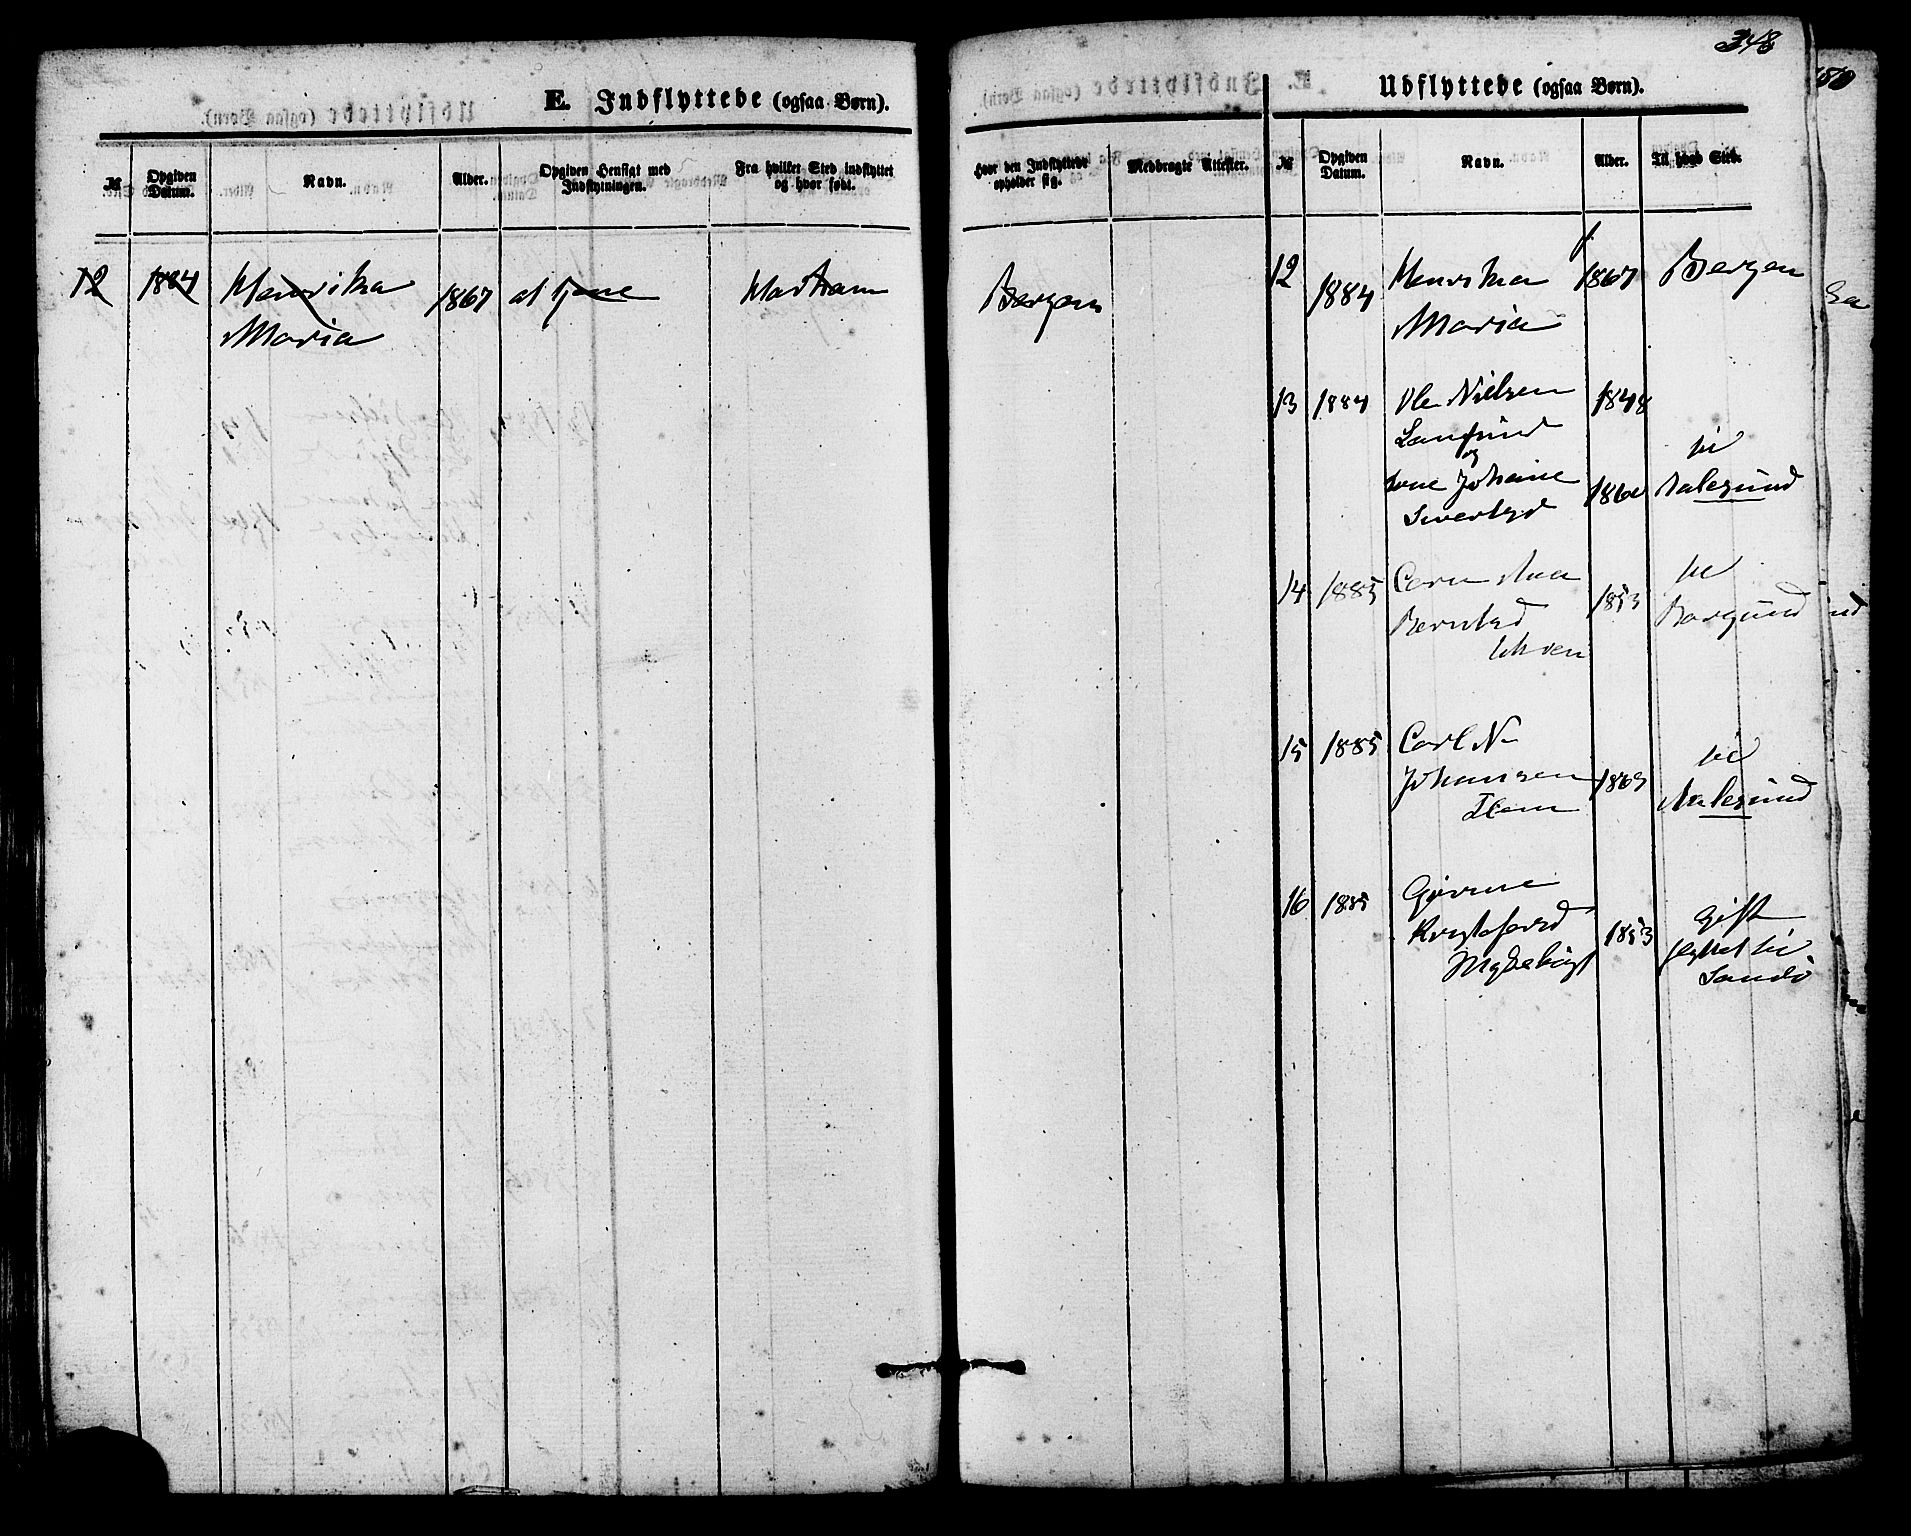 348
E. Indflyttede (ogsaa Børn).
№ Opgiven Datum. Navn. Alder. Opgiven Hensigt med Indflytningen. Fra hvilket Sted indflyttet og hvor født.
12 1884 Henrika 1867 at tjene Harham
Maria
Hvor den Indflyttede opholder sig. Medbragte Attester.
Bergen
Udflyttede (ogsaa Børn).
№ Opgiven Datum. Navn. Alder. Til hvad Sted.
12 1884 Henrika 1867 Bergen
Maria
13 1884 Ole Nielsen 1848
og
Johanne 1860 til Aalesund
14 1885 1853 til
Borgund
15 1885 Carl N. til
Johansen 1863 Aalesund
16 1885 Gift
1853 flyttet til
Myklebust Sandø